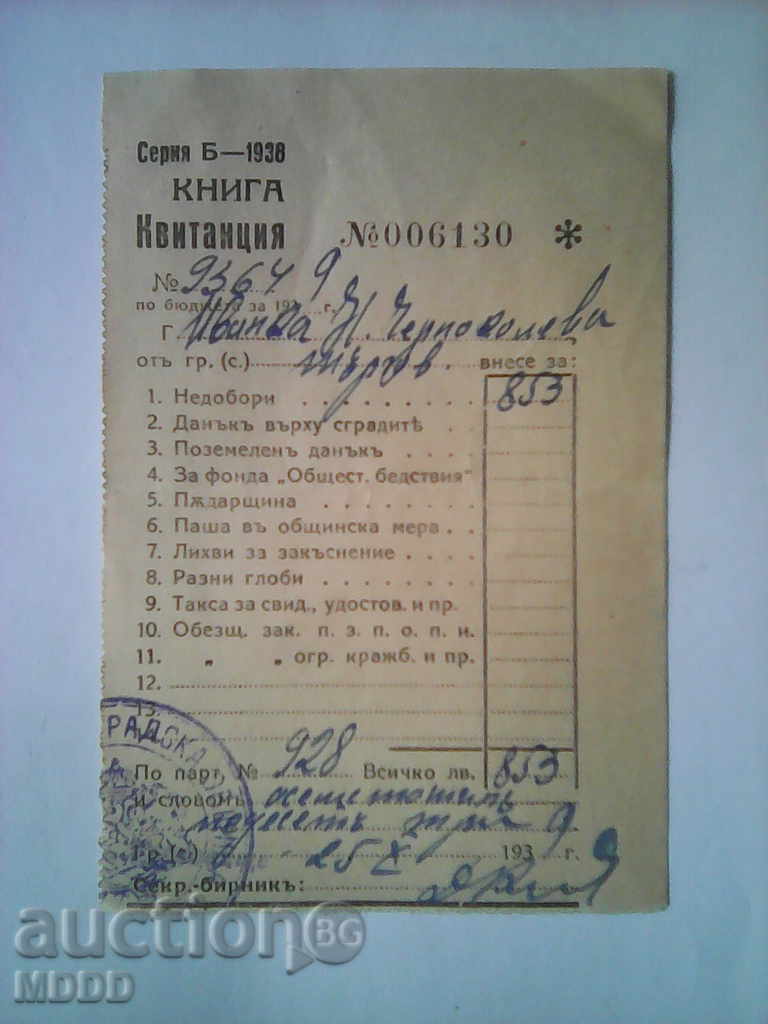 Серия Б—1938
КНИГА
Квитанция №006130 *
№ 9364 9
по бюджета за 193 г.
Г Иванка Н. Черноколева
отъ гр. (с.) внесе за:
1. Недобори . . . . . . . . . 853
2. Данъкъ върху сградитѣ . .
3. Поземеленъ данъкъ . . . .
4. За фонда „Общест. бедствия“
5. Пѫдарщина . . . . . . . .
6. Паша въ общинска мера . .
7. Лихви за закъснение . . . .
8. Разни глоби . . . . . . . .
9. Такса за свид., удостов. и пр.
10. Обезщ. зак. п. з. п. о. п. и.
11. „ „ огр. кражб. и пр.
12.
13.
РАДСКА
По парт. № 928 Всичко лв. 853
и словомъ осемстотинъ
педесеть три 9
Гр. (с) 25 X 193 г.
Секр.-бирникъ:
auction BG
MDDD